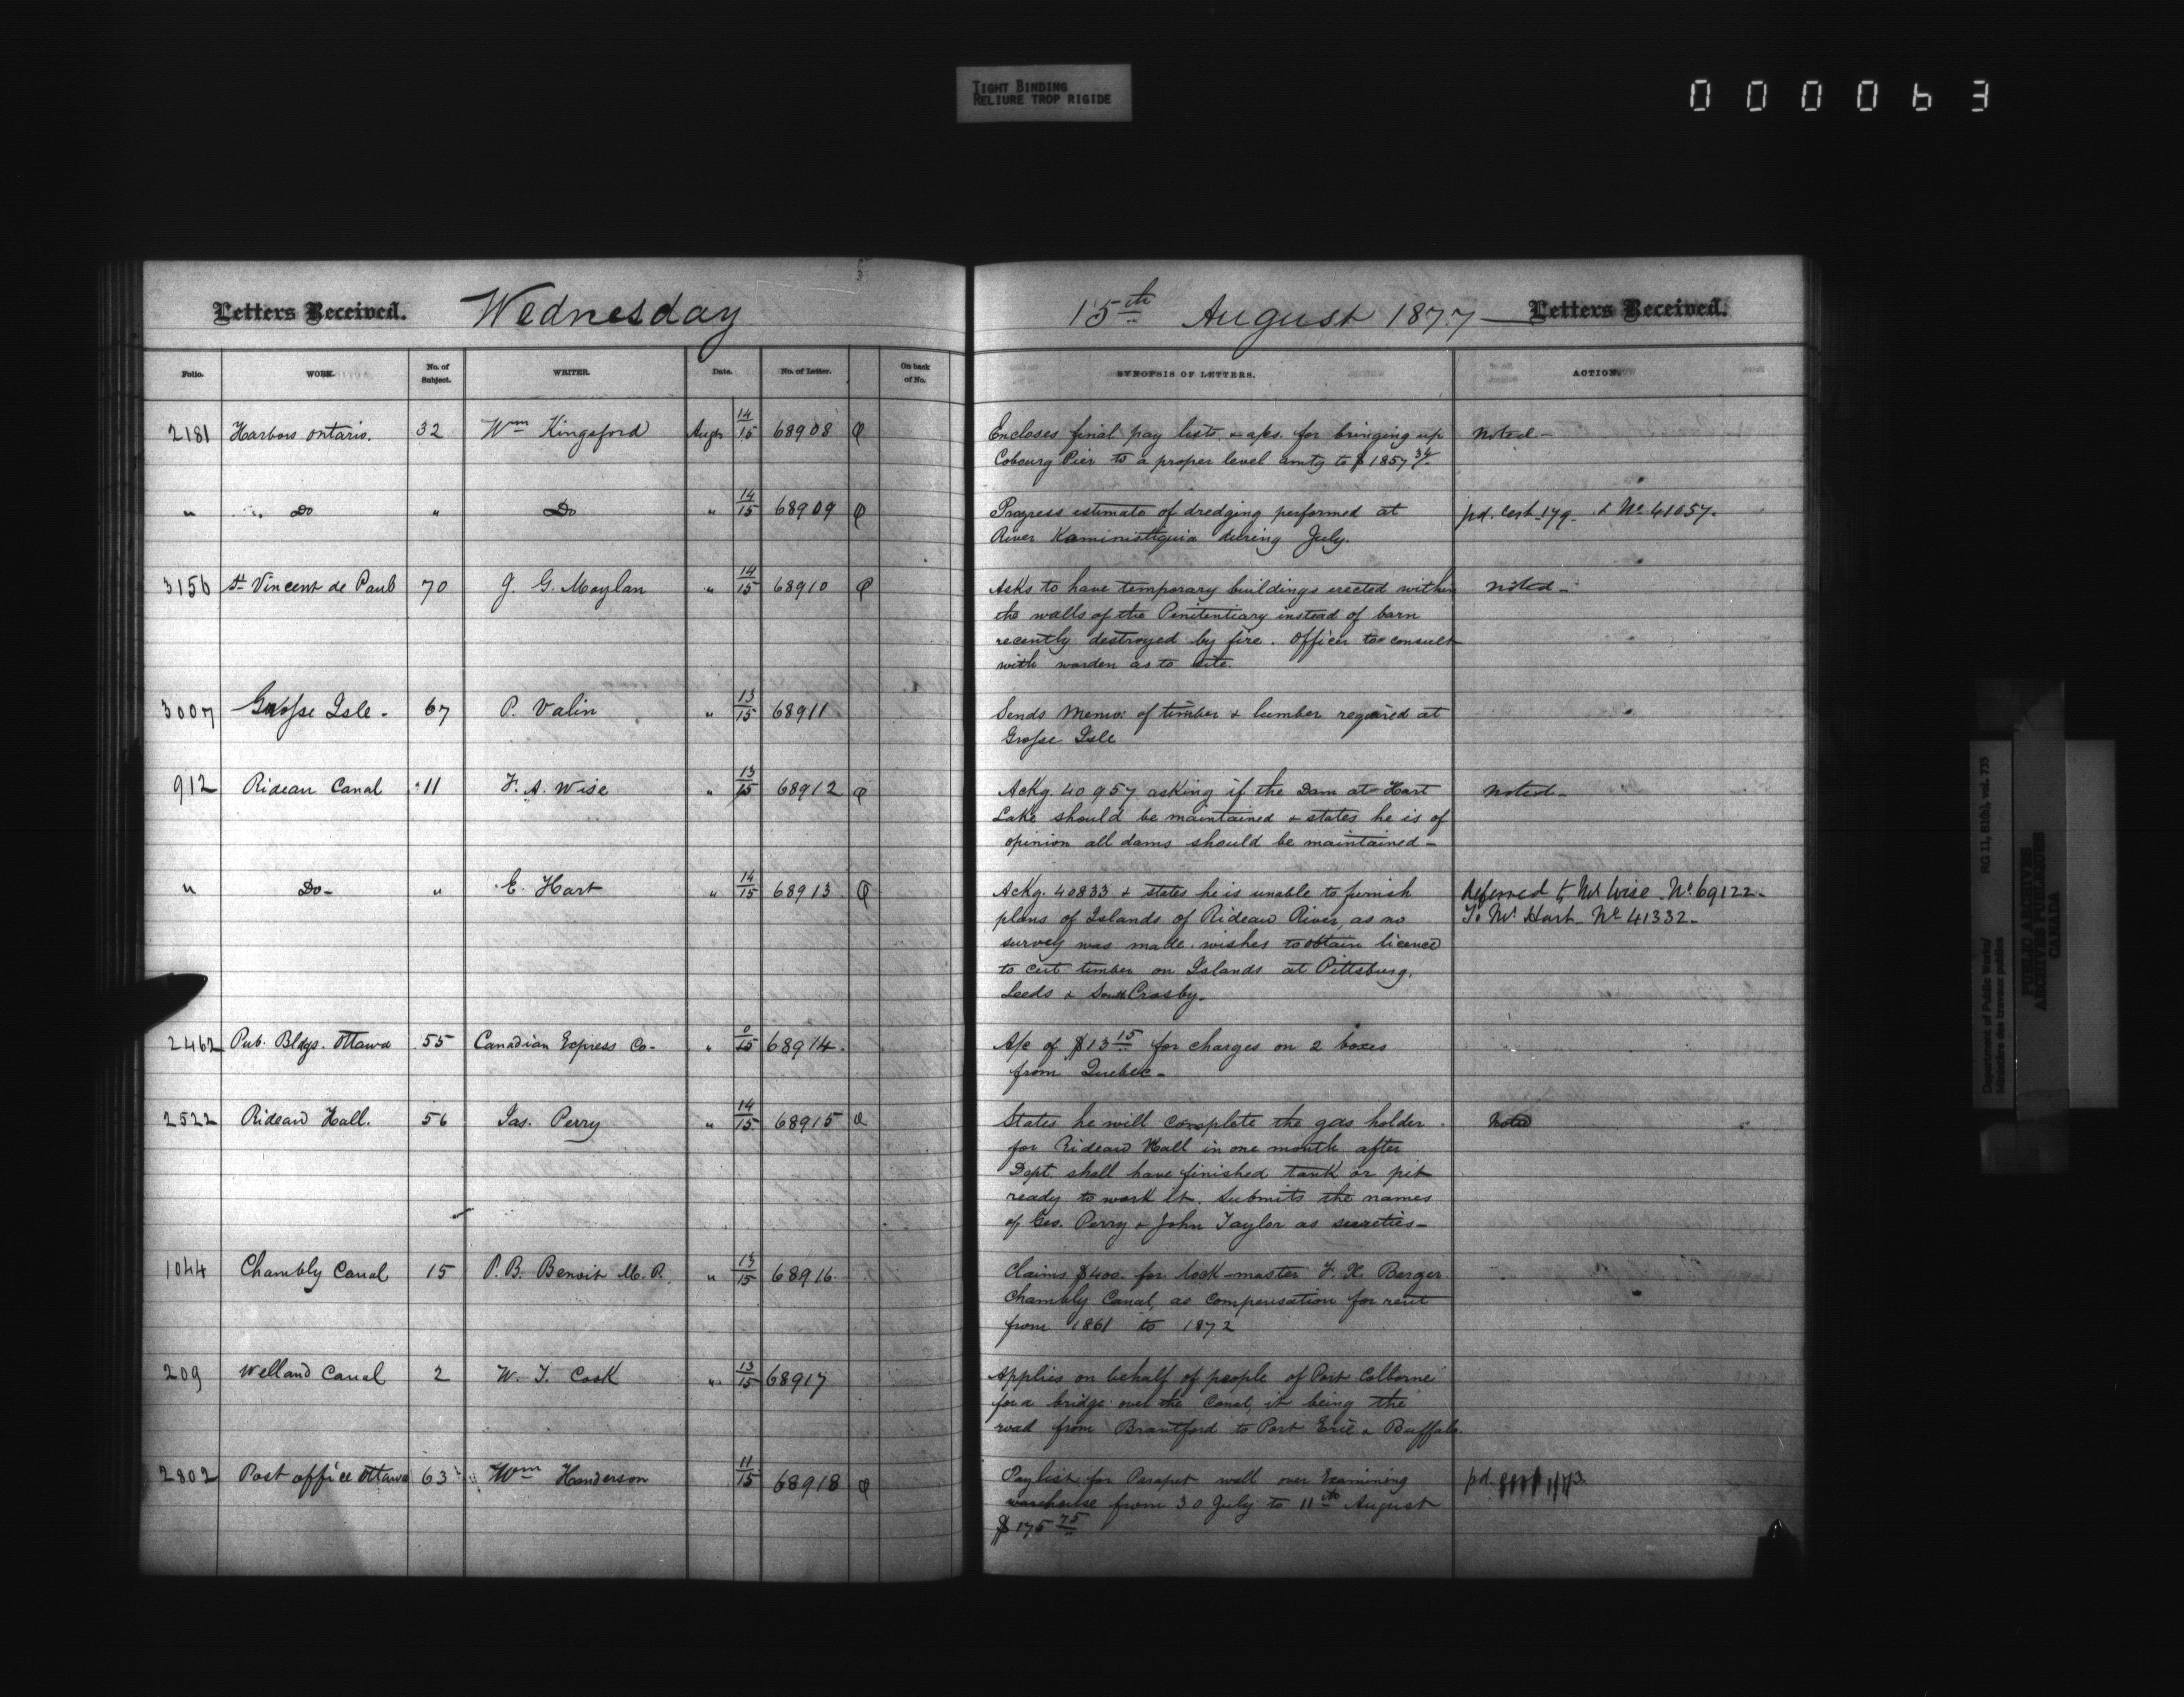 TIGHT BINDING
RELIURE TROP RIGIDE
000063
Letters Received. Wednesday 15th August 1877 — Letters Received.
Folio. WORK. No. of Subject. WRITER. Date. No. of Letter. On back of No. SYNOPSIS OF LETTERS. ACTION.
2181 Harbors Ontario. 32 Wm Kingsford Augt 14/15 68908 Encloses final pay lists & a/cs. for bringing up noted -
Cobourg Pier to a proper level amtg to $1857 34/.
" Do " Do " 14/15 68909 Progress estimate of dredging performed at pd. Cert. 179. & No 41057.
River Kaministiquia during July.
3156 St Vincent de Paul 70 J. G. Moylan " 14/15 68910 Asks to have temporary buildings erected within noted -
the walls of the Penitentiary instead of barn
recently destroyed by fire. Officer to consult
with warden as to site.
3007 Grosse Isle - 67 P. Valin " 13/15 68911 Sends Memo: of timber & lumber required at
Grosse Isle
912 Rideau Canal 11 F. A. Wise " 13/15 68912 Ackg. 40957 asking if the Dam at Hart noted -
Lake should be maintained & states he is of
opinion all dams should be maintained -
" Do - " E. Hart " 14/15 68913 Ackg. 40833 & states he is unable to furnish Referred to Mr Wise. No 69122 -
plans of Islands of Rideau River, as no To Mr Hart - No 41332 -
survey was made. wishes to obtain licence
to cut timber on Islands at Pittsburg,
Leeds & South Crosby.
2462 Pub. Bldgs. Ottawa 55 Canadian Express Co - " 0/15 68914. A/c of $13 15 for charges on 2 boxes
from Quebec -
2522 Rideau Hall. 56 Jas. Perry " 14/15 68915 States he will complete the gas holder Noted
for Rideau Hall in one month after
Dept. shall have finished tank or pit
ready to work it. Submits the names
of Geo. Perry & John Taylor as sureties -
1044 Chambly Canal 15 P. B. Benoit M. P. " 13/15 68916. Claims $400. for lock-master F. X. Berger
Chambly Canal, as compensation for rent
from 1861 to 1872
209 Welland Canal 2 W. T. Cook " 13/15 68917 Applies on behalf of people of Port Colborne
for a bridge over the Canal, it being the
road from Brantford to Port Erie & Buffalo.
2802 Post office Ottawa 63 Wm Henderson 11/15 68918 Paylist for Parapet wall over Examining pd.
warehouse from 30 July to 11th August
$175 75
Department of Public Works/
Ministère des travaux publics
RG 11, B1(b), vol. 735
PUBLIC ARCHIVES
ARCHIVES PUBLIQUES
CANADA